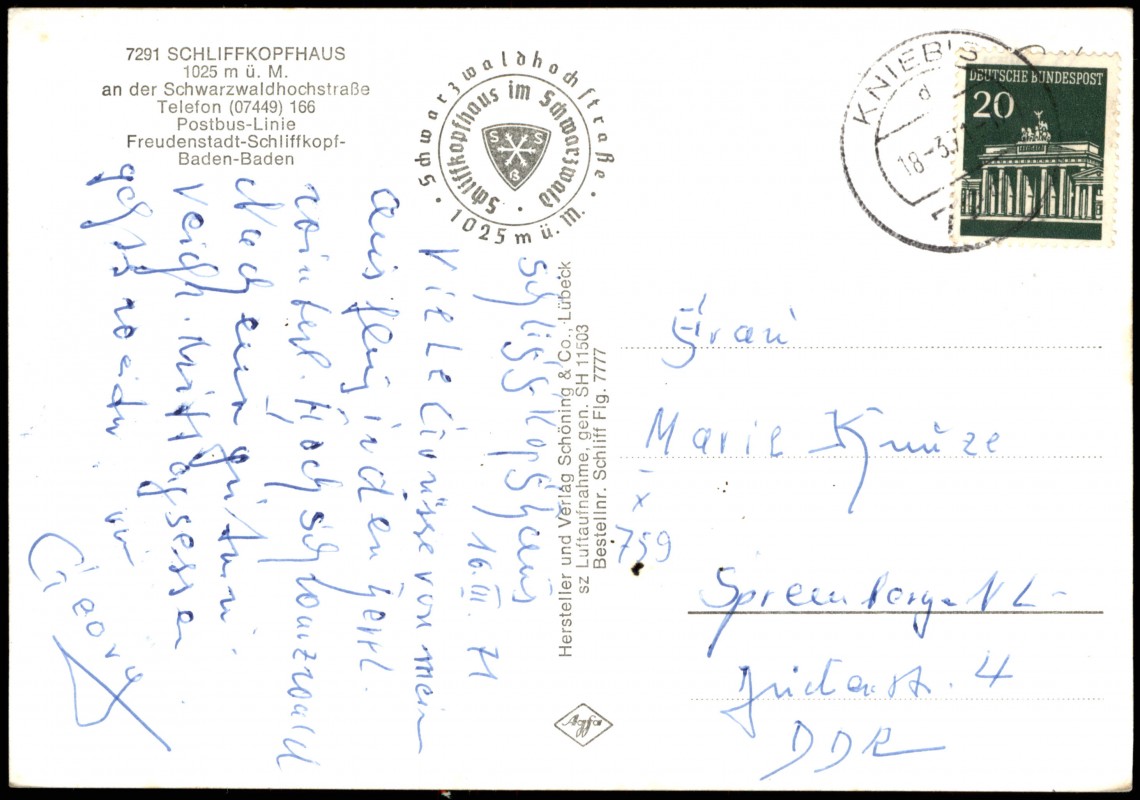 7291 SCHLIFFKOPFHAUS
1025 m ü. M.
an der Schwarzwaldhochstraße
Telefon (07449) 166
Postbus-Linie
Freudenstadt-Schliffkopf-
Baden-Baden
Schwarzwaldhochstraße
· 1025 m ü. M. ·
Schliffkopfhaus im Schwarzwald ·
S S
B
KNIEBIS
d
18-3.71
DEUTSCHE BUNDESPOST
20
Schliffkopfhaus
16. III. 71
Viele Grüsse von mein
Ausflug in den herrl.
winterl. Hochschwarzwald
Nach ein guten
reich. Mittagessen
gehts weiter
Georg
Hersteller und Verlag Schöning & Co., Lübeck
sz Luftaufnahme, gen. SH 11503
Bestellnr. Schliff Flg. 7777
Agfa
Frau
Marie Kunze
x
759
Spremberg-NL-
DDR